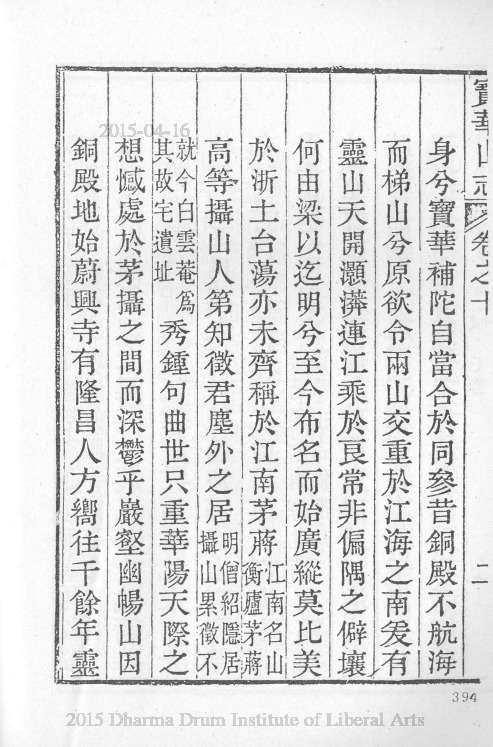 寶華山志 卷之十 二
身兮寶華補陀自當合於同參昔銅殿不航海
而梯山兮原欲令兩山交重於江海之南爰有
靈山天開灝漭連江乘於艮常非偏隅之僻壤
何由梁以迄明兮至今布名而始廣縱莫比美
於浙土台蕩亦未齊稱於江南茅蔣江南名山衡廬茅蔣
高等攝山人第知徵君塵外之居明僧紹隱居攝山累徵不
就今白雲菴爲其故宅遺址秀鍾句曲世只重華陽天際之
想憾處於茅攝之間而深鬱乎巖壑幽暢山因
銅殿地始蔚興寺有隆昌人方嚮往千餘年靈
394
2015-04-16
2015 Dharma Drum Institute of Liberal Arts